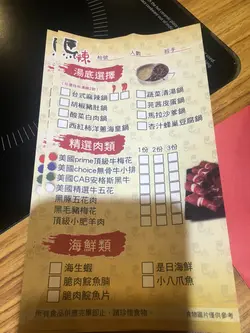 辣 桌號 人數
湯底選擇
台式麻辣鍋 蔬菜清湯鍋
胡椒豬肚鍋 芫荽皮蛋鍋
酸菜白肉鍋 馬拉沙爹鍋
西紅柿洋蔥海皇鍋 杏汁蜂巢豆腐鍋
精選肉類
1份 2份 3份
美國prime頂級牛梅花
美國choice無骨牛小排
美國CAB安格斯黑牛
美國精選牛五花
黑豚五花肉
黑毛豬梅花
頂級小肥羊肉
海鮮類
海生蝦 是日海鮮
脆肉鯇魚腩 小八爪魚
脆肉鯇魚片